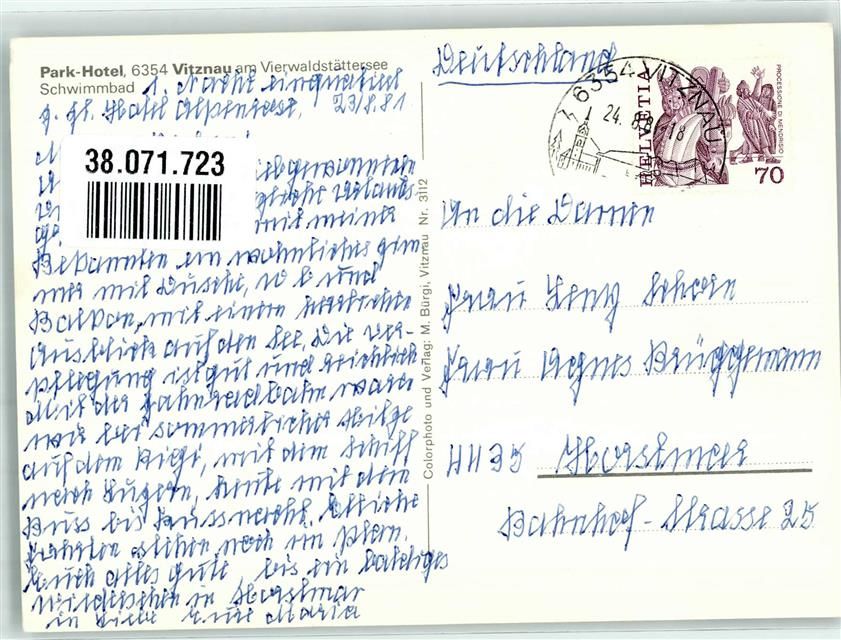 Park-Hotel, 6354 Vitznau am Vierwaldstättersee
Schwimmbad 1. Nacht einquartiert
z. Zt. Hotel Alpenrose, 23/8.81
38.071.723
mit meiner
Bekannten ein wohnliches Zim
mer mit Dusche, W C und
Balkon, mit einem herrlichen
Ausblick auf den See. Die Ver-
pflegung ist gut und reichlich
Mit der Zahnradbahn waren
wir bei sommerlicher Hitze
auf dem Rigi, mit dem Schiff
nach Luzern, heute mit dem
Buss bis Küssnacht. Etliche
Fahrten stehen noch im Plan.
Euch alles gute, bis ein baldiges
Wiedersehen in Horstmar
in Liebe Eure Maria
Colorphoto und Verlag: M. Bürgi, Vitznau Nr. 3112
Deutschland
6354 VITZNAU
24. 8. 81 - 18
HELVETIA
PROCESSIONE DI MENDRISIO
70
An die Damen
Frau Leny Schorn
Frau Agnes Brüggemann
4435 Horstmar
Bahnhof-Strasse 25